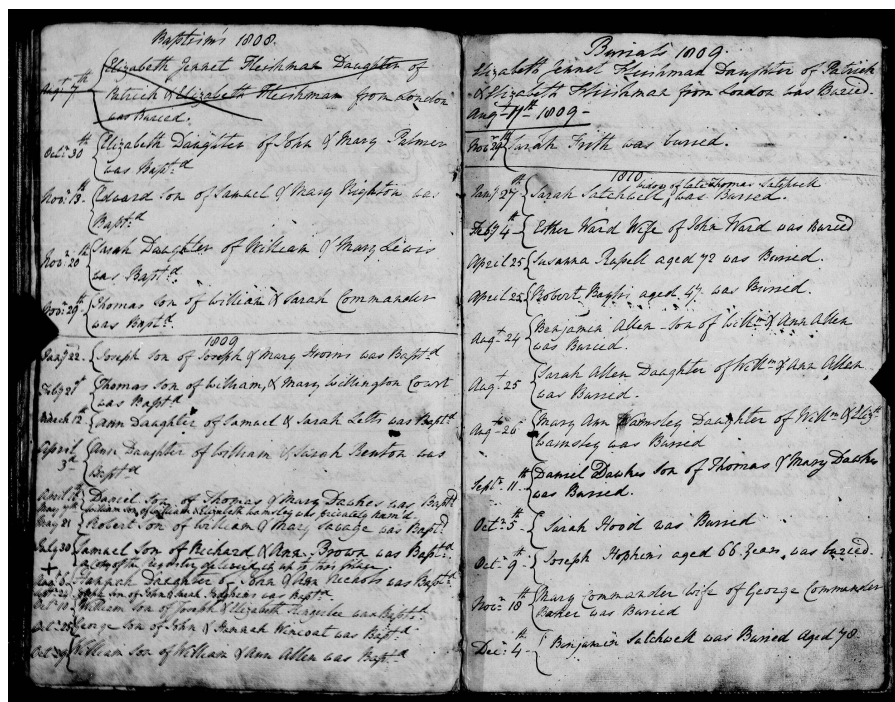 Baptisms 1808.
Elizabeth Jennet Fleishman Daughter of
Augt 7th Patrick & Elizabeth Fleishman from London
was Buried.
Octr 30th Elizabeth Daughter of John & Mary Palmer
was Baptd
Novr 13th Edward Son of Samuel & Mary Nighton was
Baptd
Novr 20th Sarah Daughter of William & Mary Lewis
was Baptd
Novr 29th Thomas Son of William & Sarah Commander
was Baptd
1809
Jany 22 Joseph Son of Joseph & Mary was Baptd
Feby 21st Thomas Son of William & Mary Willington Court
was Baptd
March 12th Ann Daughter of Samuel & Sarah Letts was Baptd
April 3d Ann Daughter of William & Sarah Benton was
Baptd
April Daniel Son of Thomas & Mary Dawkes was Baptd
May William Son of William & Elizabeth Wamsley was privately nam'd
May 21 Robert Son of William & Mary Savage was Baptd
July 30 Samuel Son of Richard & Ann Brown was Baptd
a Copy of the Register delivered in up to this place
+
Augt 6 Hannah Daughter of John & Ann Nichols was Baptd
Son of John & Sarah Hodgkins was Baptd
Octr 10 William Son of Joseph & Elizabeth was Baptd
Octr 25 George Son of John & Hannah Wincoat was Baptd
Octr 29 William Son of William & Ann Allen was Baptd
Burials 1809.
Elizabeth Jennet Fleishman Daughter of Patrick
& Elizabeth Fleishman from London was Buried.
Augt 1809
Novr 29th Sarah Frith was buried.
1810
widow of late Thomas Satchwell
Jany 27th Sarah Satchwell was Buried.
Feby 4th Esther Ward Wife of John Ward was Buried
April 25 Susanna Russell aged 72 was Buried.
April 25 Robert Baylis aged 47 was Buried.
Augt 24 Benjamin Allen Son of Willm & Ann Allen
was Buried.
Augt 25 Sarah Allen Daughter of Willm & Ann Allen
was Buried.
Augt 26 Mary Ann Wamsley Daughter of Willm & Elizth
Wamsley was Buried
Septr 11th Daniel Dawkes Son of Thomas & Mary Dawkes
was Buried.
Octr 5th Sarah Hood was Buried
Octr 9th Joseph Hopkins aged 66 Years was buried.
Novr 18th Mary Commander Wife of George Commander
Baker was Buried
Decr 4th Benjamin Satchwell was Buried Aged 78